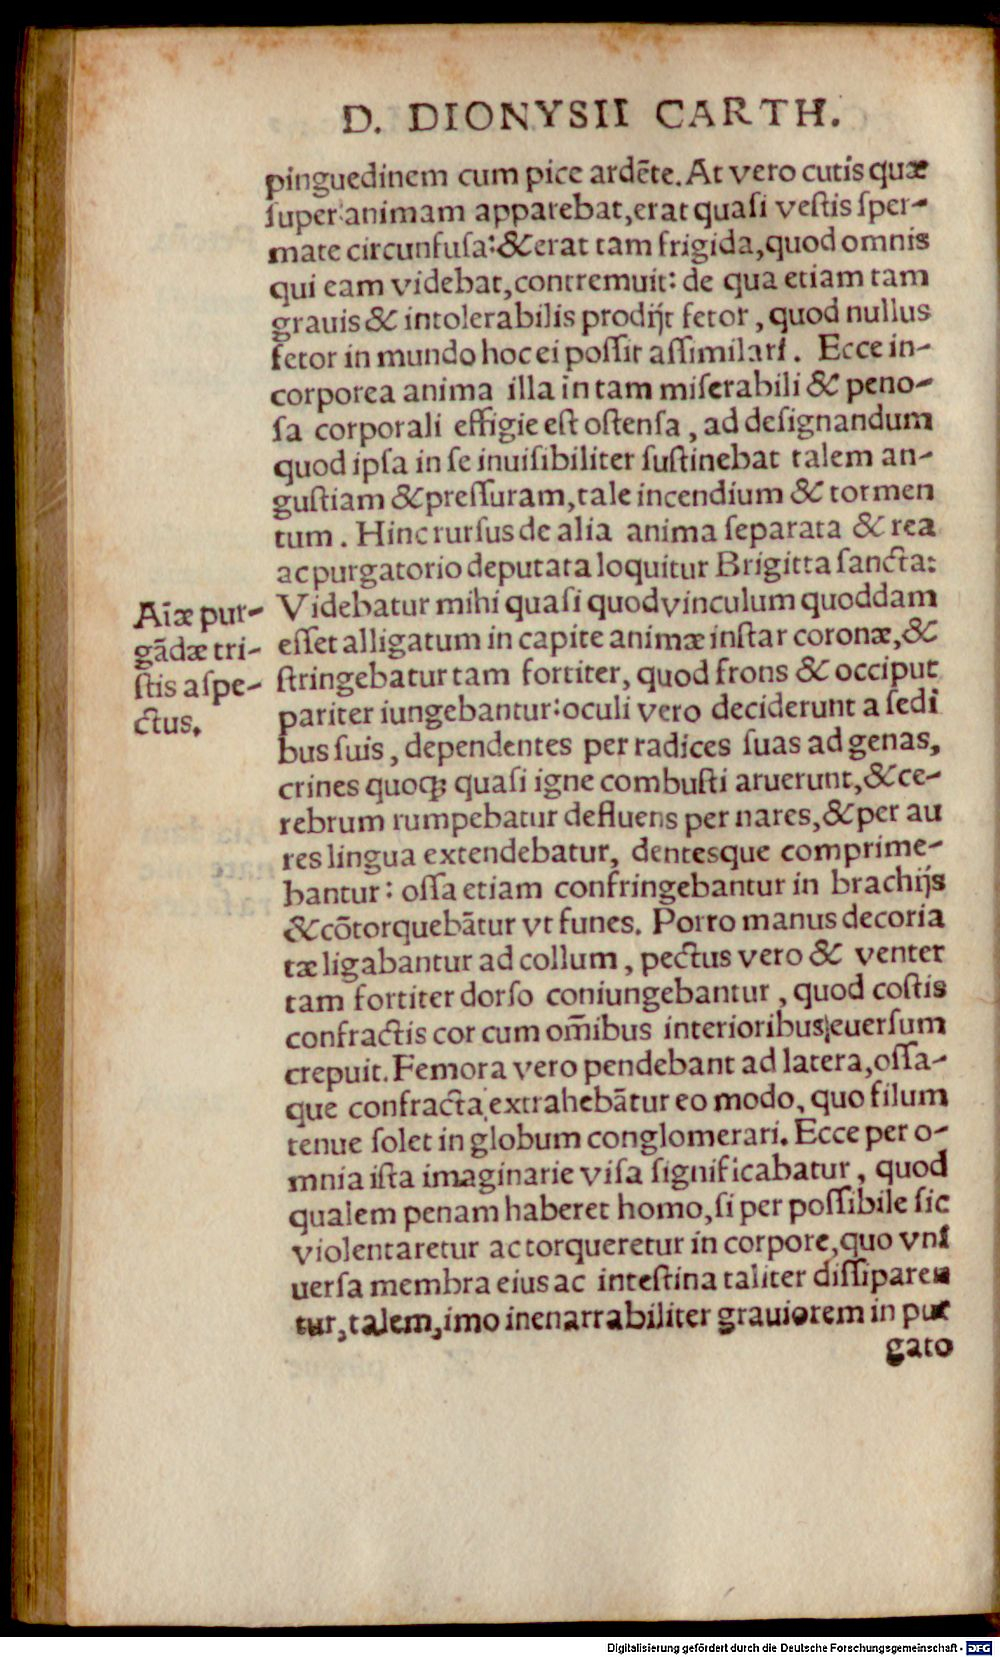 D. DIONYSII CARTH.
pinguedinem cum pice ardēte. At vero cutis quæ
ſuper animam apparebat, erat quaſi veſtis ſper-
mate circunfuſa: & erat tam frigida, quod omnis
qui eam videbat, contremuit: de qua etiam tam
grauis & intolerabilis prodijt fetor, quod nullus
fetor in mundo hoc ei poſſit aſſimilari. Ecce in-
corporea anima illa in tam miſerabili & peno-
ſa corporali effigie eſt oſtenſa, ad deſignandum
quod ipſa in ſe inuiſibiliter ſuſtinebat talem an-
guſtiam & preſſuram, tale incendium & tormen
tum. Hinc rurſus de alia anima ſeparata & rea
ac purgatorio deputata loquitur Brigitta ſancta:
Videbatur mihi quaſi quod vinculum quoddam
eſſet alligatum in capite animæ inſtar coronæ, &
ſtringebatur tam fortiter, quod frons & occiput
pariter iungebantur: oculi vero deciderunt a ſedi
bus ſuis, dependentes per radices ſuas ad genas,
crines quoqꝫ quaſi igne combuſti aruerunt, & ce-
rebrum rumpebatur defluens per nares, & per au
res lingua extendebatur, dentesque comprime-
bantur: oſſa etiam confringebantur in brachijs
& cōtorquebātur vt funes. Porro manus decoria
tæ ligabantur ad collum, pectus vero & venter
tam fortiter dorſo coniungebantur, quod coſtis
confractis cor cum om̄ibus interioribus euerſum
crepuit. Femora vero pendebant ad latera, oſſa-
que confracta extrahebātur eo modo, quo filum
tenue ſolet in globum conglomerari. Ecce per o-
mnia iſta imaginarie viſa ſignificabatur, quod
qualem penam haberet homo, ſi per poſſibile ſic
violentaretur ac torqueretur in corpore, quo vni
uerſa membra eius ac inteſtina taliter diſſiparen
tur, talem, imo inenarrabiliter grauiorem in pur
gato
Aīæ pur-
gādæ tri-
ſtis aſpe-
ctus.
Digitalisierung gefördert durch die Deutsche Forschungsgemeinschaft - DFG